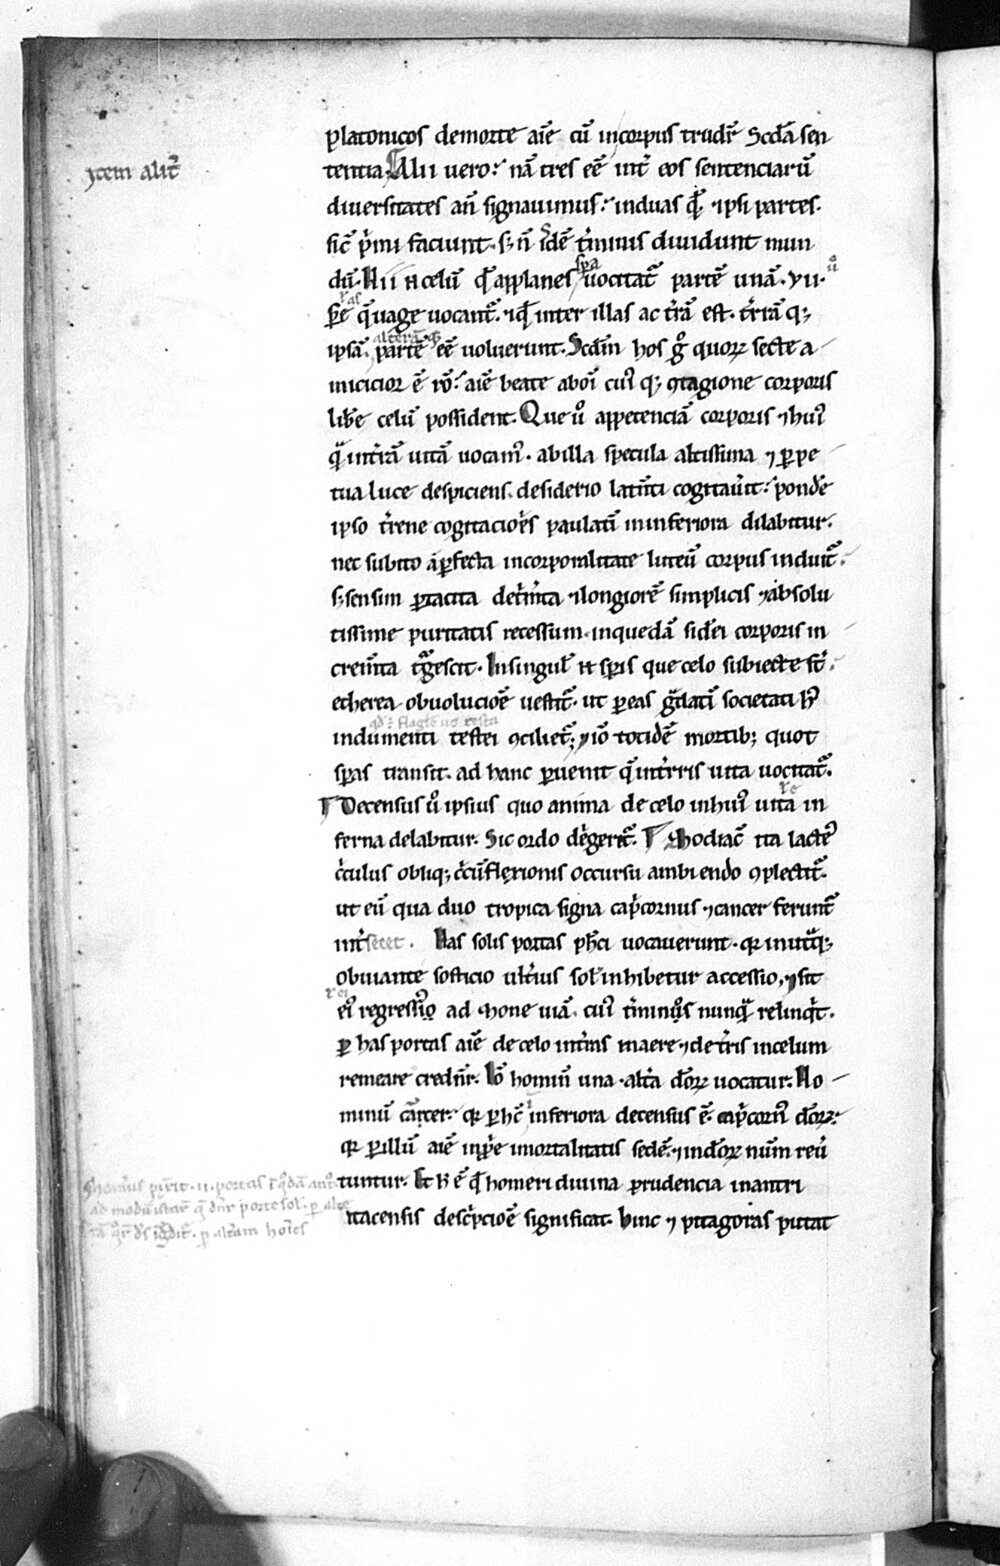 platonicos demorte aīe cū incorpus trudr̄ Scd̄a sen
ẏtem alit̄
tentia. Alii uero. nā tres eē int̄ eos sentenciarū
diuersitates añ signauimus. induas q̄ ipsi partes.
sic̄ p̄mi faciunt. s; ñ isdē t̄minis diuidunt mun
dū. Hii .n. celū q̄ applanes spa uocitat̄ partē unā. vii. ū
sp̄e q̄ uage uocant̄. ⁊ q̄ inter illas ac t̄rā est. t̄riā q;
alterā
ipsā. partē eē uoluerunt. Scd̄m hos g̊ quoꝝ secte a
micicior ē rō. aīe beate aboī cuiꝰ q; ꝯtagione corporis
lib̄e celū possident. Que u̇ appetenciā corporis ⁊ huiꝰ
q̄ int̄rā uitā uocamꝰ. abilla specula altissima ⁊ ꝑpe
tua luce despiciens. desiderio latenti cogitau̇it. pond̄e
ipso t̄rene cogitacioīs paulatī ininferiora dilabitur.
nec subito aꝑfecta incorporalitate luteū corpus induit̄.
s; sensim ꝑtacita det̄m̄ta ⁊ longiorē simplicis ⁊ absolu
tissime puritatis recessum. inquedā sid̄ei corporis in
crem̄ta t̄gescit. Insingul̄ .n. sꝑis que celo subiecte st̄.
etherea obuolucioē uestit̄. ut ꝑeas g̈datī societati hꝰ
indumenti testei ꝯciliet̄; ⁊ iō totidē mortib; quot
sꝑas transit. ad hanc ꝑuenit q̄ int̄rris uita uocitat̄.
Decensus u̇ ipsius quo anima de celo inhuiꝰ uita in
ferna delabitur. Sic ordo dēgerit̄. zhodiac̄ ita lactē
c̄culus obliq; c̄cūflęxionis occursu ambiendo ꝯplectit̄.
ut eū qua duo tropica signa cap̄cornus ⁊ cancer ferunt̄
int̄secet. Has solis portas ph̄ci uocauerunt. qꝛ inutq̄;
obuiante solsticio ult̄ius sol̄ inhibetur accessio, ⁊ sit
eiꝰ regressio ad zhone uiā. cuiꝰ t̄minos nunq̄ relinq̄t.
ꝑ has portas aīe de celo int̄ras maere ⁊ det̄ris incelum
remeare credūr. Iō hominū una. alt̄a dōꝝ uocatur. Ho
minū cācer. qꝛ ꝑhc̄ inferiora decensus ē. cap̄cornꝰ dōꝝ.
qꝛ ꝑillū aīe inp̄e imortalitatis sedē. ⁊ indōꝝ num̄ reū
tuntur. Et h̄ ē q̄ homeri diuina prudencia inantri
itacensis desc̄pcioē significat. Hinc ⁊ pitagoras putat